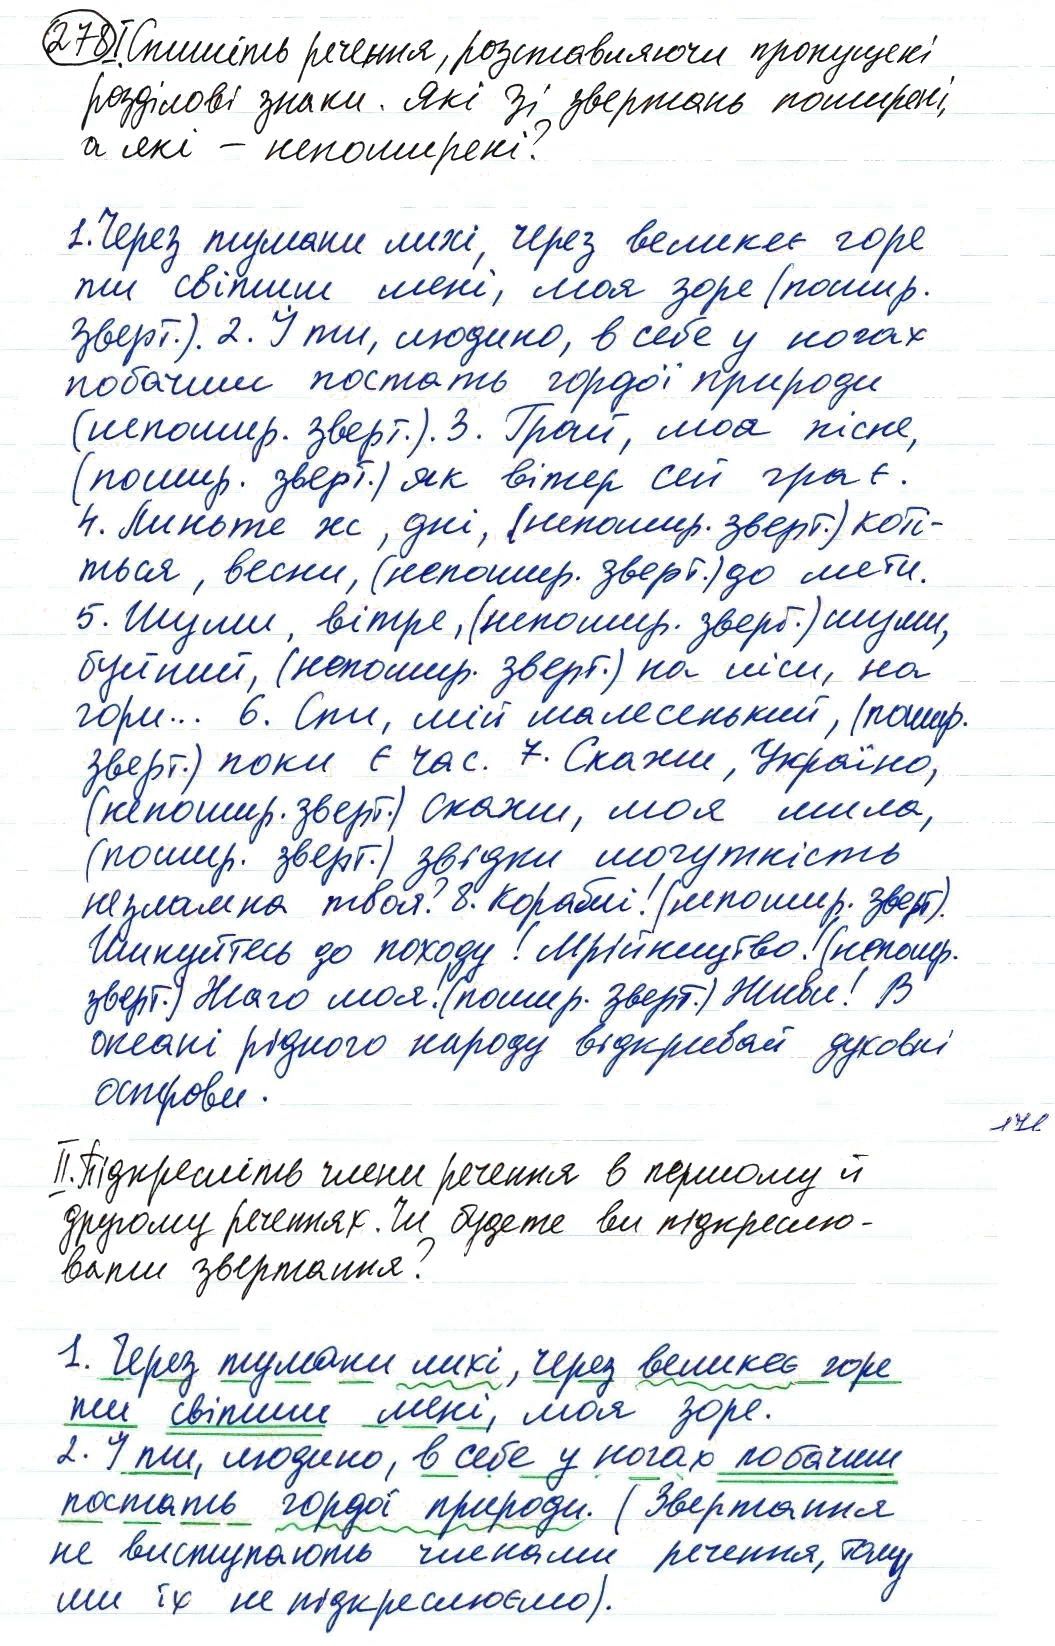 278 I. Спишіть речення, розставляючи пропущені
розділові знаки. Які зі звертань поширені,
а які – непоширені?
1. Через тумани лихі, через великеє горе
ти світиш мені, моя зоре (пошир.
зверт.). 2. І ти, людино, в себе у ногах
побачиш постать гордої природи
(непошир. зверт.). 3. Грай, моя пісне,
(пошир. зверт.) як вітер сей грає.
4. Линьте ж, дні, (непошир. зверт.) коті-
ться, весни, (непошир. зверт.) до мети.
5. Шуми, вітре, (непошир. зверт.) шуми,
буйний, (непошир. зверт.) на ліси, на
гори... 6. Спи, мій малесенький, (пошир.
зверт.) поки є час. 7. Скажи, Україно,
(непошир. зверт.) скажи, моя мила,
(пошир. зверт.) звідки могутність
незламна твоя? 8. Кораблі! (непошир. зверт).
Шикуйтесь до походу! Мрійництво! (непошир.
зверт.) Жаго моя! (пошир. зверт.) Живи! В
океані рідного народу відкривай духовні
острови.
171
II. Підкресліть члени речення в першому й
другому реченнях. Чи будете ви підкреслю-
вати звертання?
1. Через тумани лихі, через великеє горе
ти світиш мені, моя зоре.
2. І ти, людино, в себе у ногах побачиш
постать гордої природи. (Звертання
не виступають членами речення, тому
ми їх не підкреслюємо).